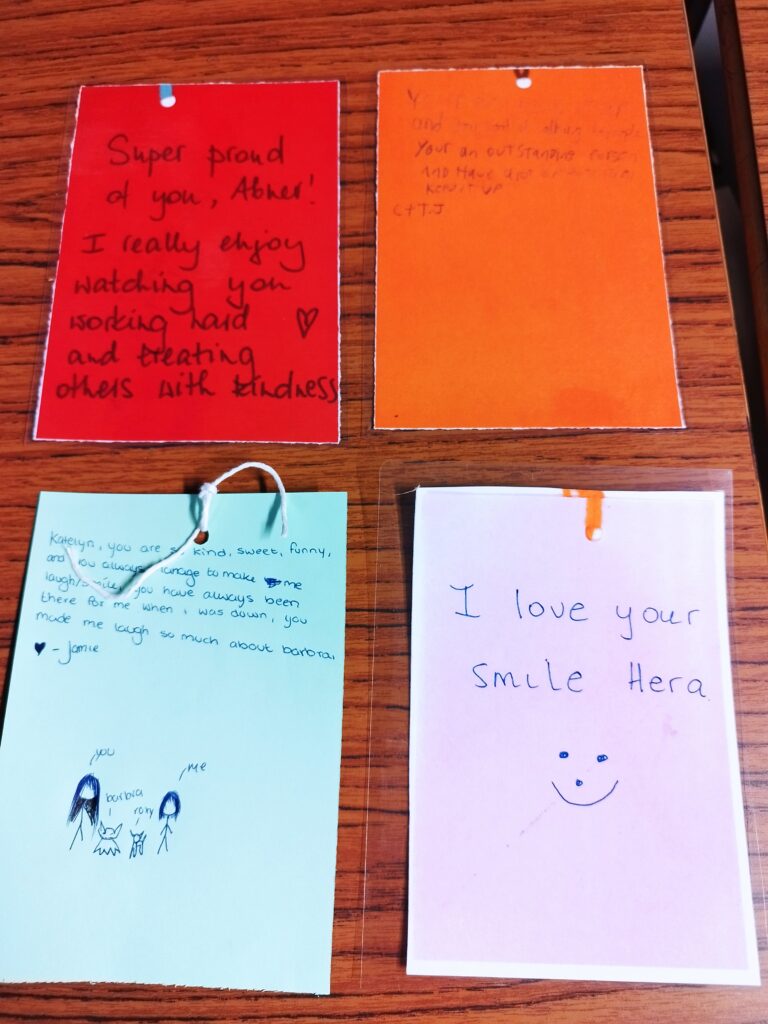 Super proud
of you, Abner!
I really enjoy
watching you
working hard
and treating
others with kindness
and
Your an outstanding person
and Have
Keep it up
C+T.J
Katelyn, you are so kind, sweet, funny,
and you always manage to make me
laugh/smile, you have always been
there for me when i was down, you
made me laugh so much about barbra.
♥ - Jamie
you
me
barbra
roxy
I love your
smile Hera